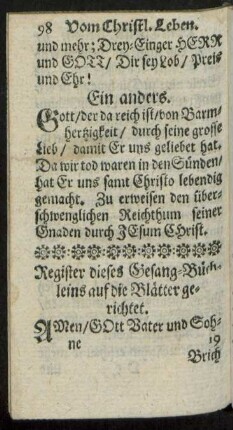 98 Vom Christl. Leben.
und mehr; Drey-Einger HERR
und GOTT/ Dir sey Lob/ Preis
und Ehr!
Ein anders.
Gott/ der da reich ist/ von Barm-
hertzigkeit/ durch seine grosse
Lieb/ damit Er uns geliebet hat.
Da wir tod waren in den Sünden/
hat Er uns samt Christo lebendig
gemacht. Zu erweisen den über-
schwenglichen Reichthum seiner
Gnaden durch JEsum CHrist.
Register dieses Gesang-Büch-
leins auf die Blätter ge-
richtet.
AMen/ GOtt Vater und Soh-
ne 19
Brich